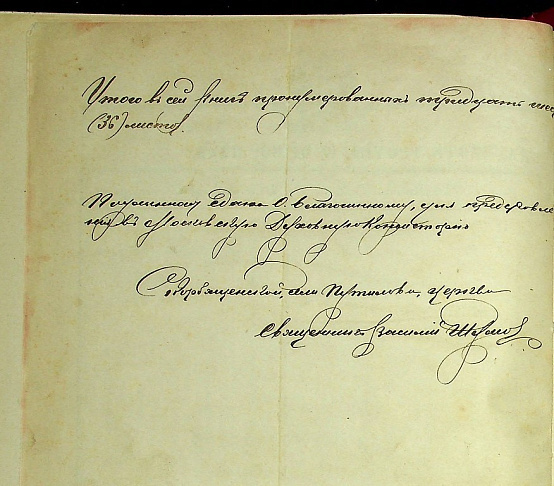 Итого въ сей книгѣ пронумерованныхъ тридцать шес
(36) листовъ.
сдаю О. Благочинному, для представле
нія въ Московскую Духовную Консисторію
села Путилова, церкви
Священникъ Василій